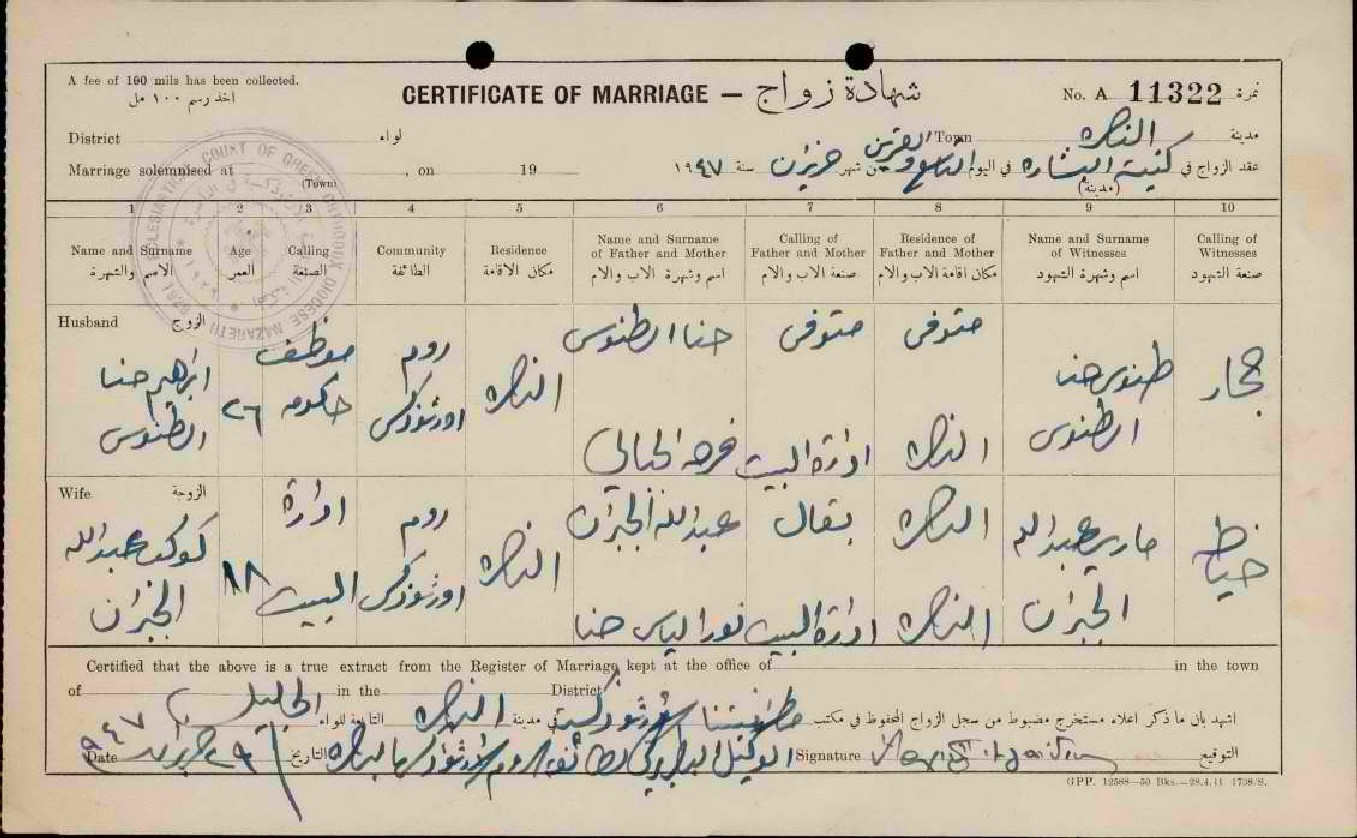 A fee of 100 mils has been collected.
اخذ رسم ١٠٠ مل
CERTIFICATE OF MARRIAGE — شهادة زواج
No. A 11322 نمرة
District لواء Town الناصره مدينة
Marriage solemnised at (Town), on 19
عقد الزواج في كنيسة البشاره (مدينة) في اليوم التاسع والعشرين من شهر حزيران سنة ١٩٤٧
1 2 3 4 5 6 7 8 9 10
Name and Surname Age Calling Community Residence Name and Surname of Father and Mother Calling of Father and Mother Residence of Father and Mother Name and Surname of Witnesses Calling of Witnesses
الاسم والشهرة العمر الصنعة الطائفة مكان الاقامة اسم وشهرة الاب والام صنعة الاب والام مكان اقامة الاب والام اسم وشهرة الشهود صنعة الشهود
Husband الزوج
ابراهيم حنا الطنوس
٢٦
موظف حكومه
روم اورثوذكس
الناصره
حنا الطنوس
متوفى
متوفى
طنوس حنا الطنوس
حجار
ادارة البيت
الناصره
Wife الزوجة
كوكب عبدالله الجبران
١٨
ادارة البيت
روم اورثوذكس
الناصره
عبدالله الجبران
بقال
الناصره
عبدالله الجبران
خياط
نور الياس حنا
ادارة البيت
الناصره
Certified that the above is a true extract from the Register of Marriage kept at the office of in the town
of in the District
اشهد بان ما ذكر اعلاه مستخرج مضبوط من سجل الزواج المحفوظ في مكتب في مدينة الناصره التابعة للواء الجليل
التوقيع Signature
التاريخ ٢٩ حزيران ٩٤٧ Date
GPP. 12588—50 Bks.—28.4.41 1798/S.
ECCLESIASTICAL COURT OF GREEK ORTHODOX DIOCESE NAZARETH